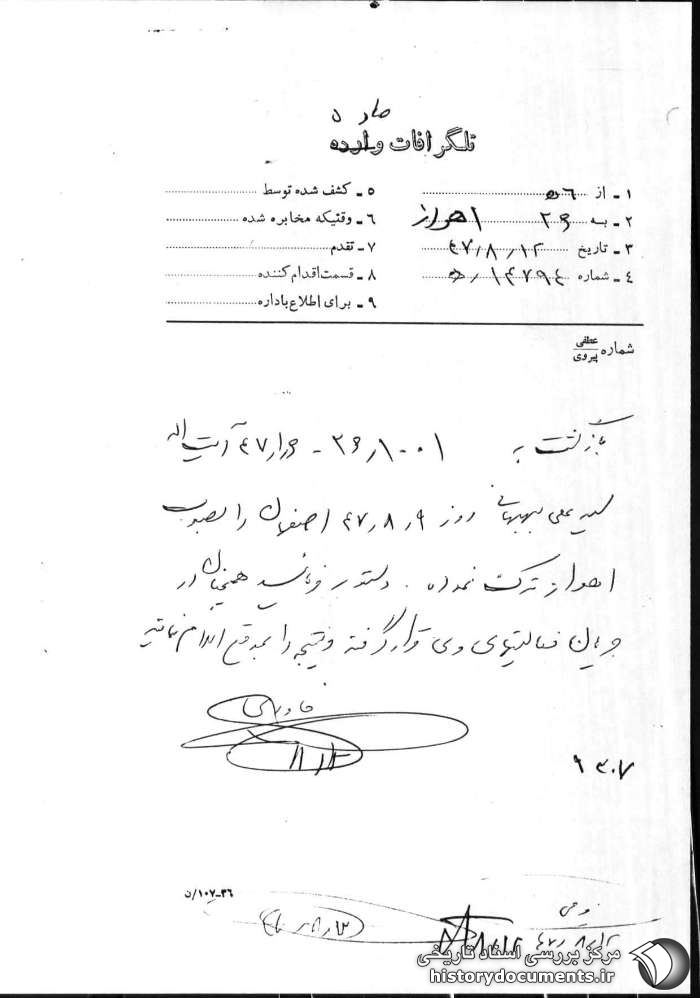 صادره
تلگرافات وارده
۱ - از ۵۶
۲ - به ۲۶ اهواز
۳ - تاریخ ۴۷٫۸٫۱۲
۴ - شماره ۵٫۱۴۷۹۴
۵ - کشف شده توسط
۶ - وقتیکه مخابره شده
۷ - تقدم
۸ - قسمت اقدام کننده
۹ - برای اطلاع باداره
شماره عطفی
پیروی
بازگشت به ۲۶٫۱۰۰۱ - آیت اله
سید علی بهبهانی روز ۴۷٫۸٫۹ اصفهان را بصوب
اهواز ترک نموده . دستور فرمائید همچنان در
جریان فعالیتهای وی قرار گرفته و نتیجه را بموقع اعلام نمائید
۹۳۰۷
۳۶-۱۰۷/ن
۴۷٫۸٫۱۲
مرکز بررسی اسناد تاریخی
historydocuments.ir